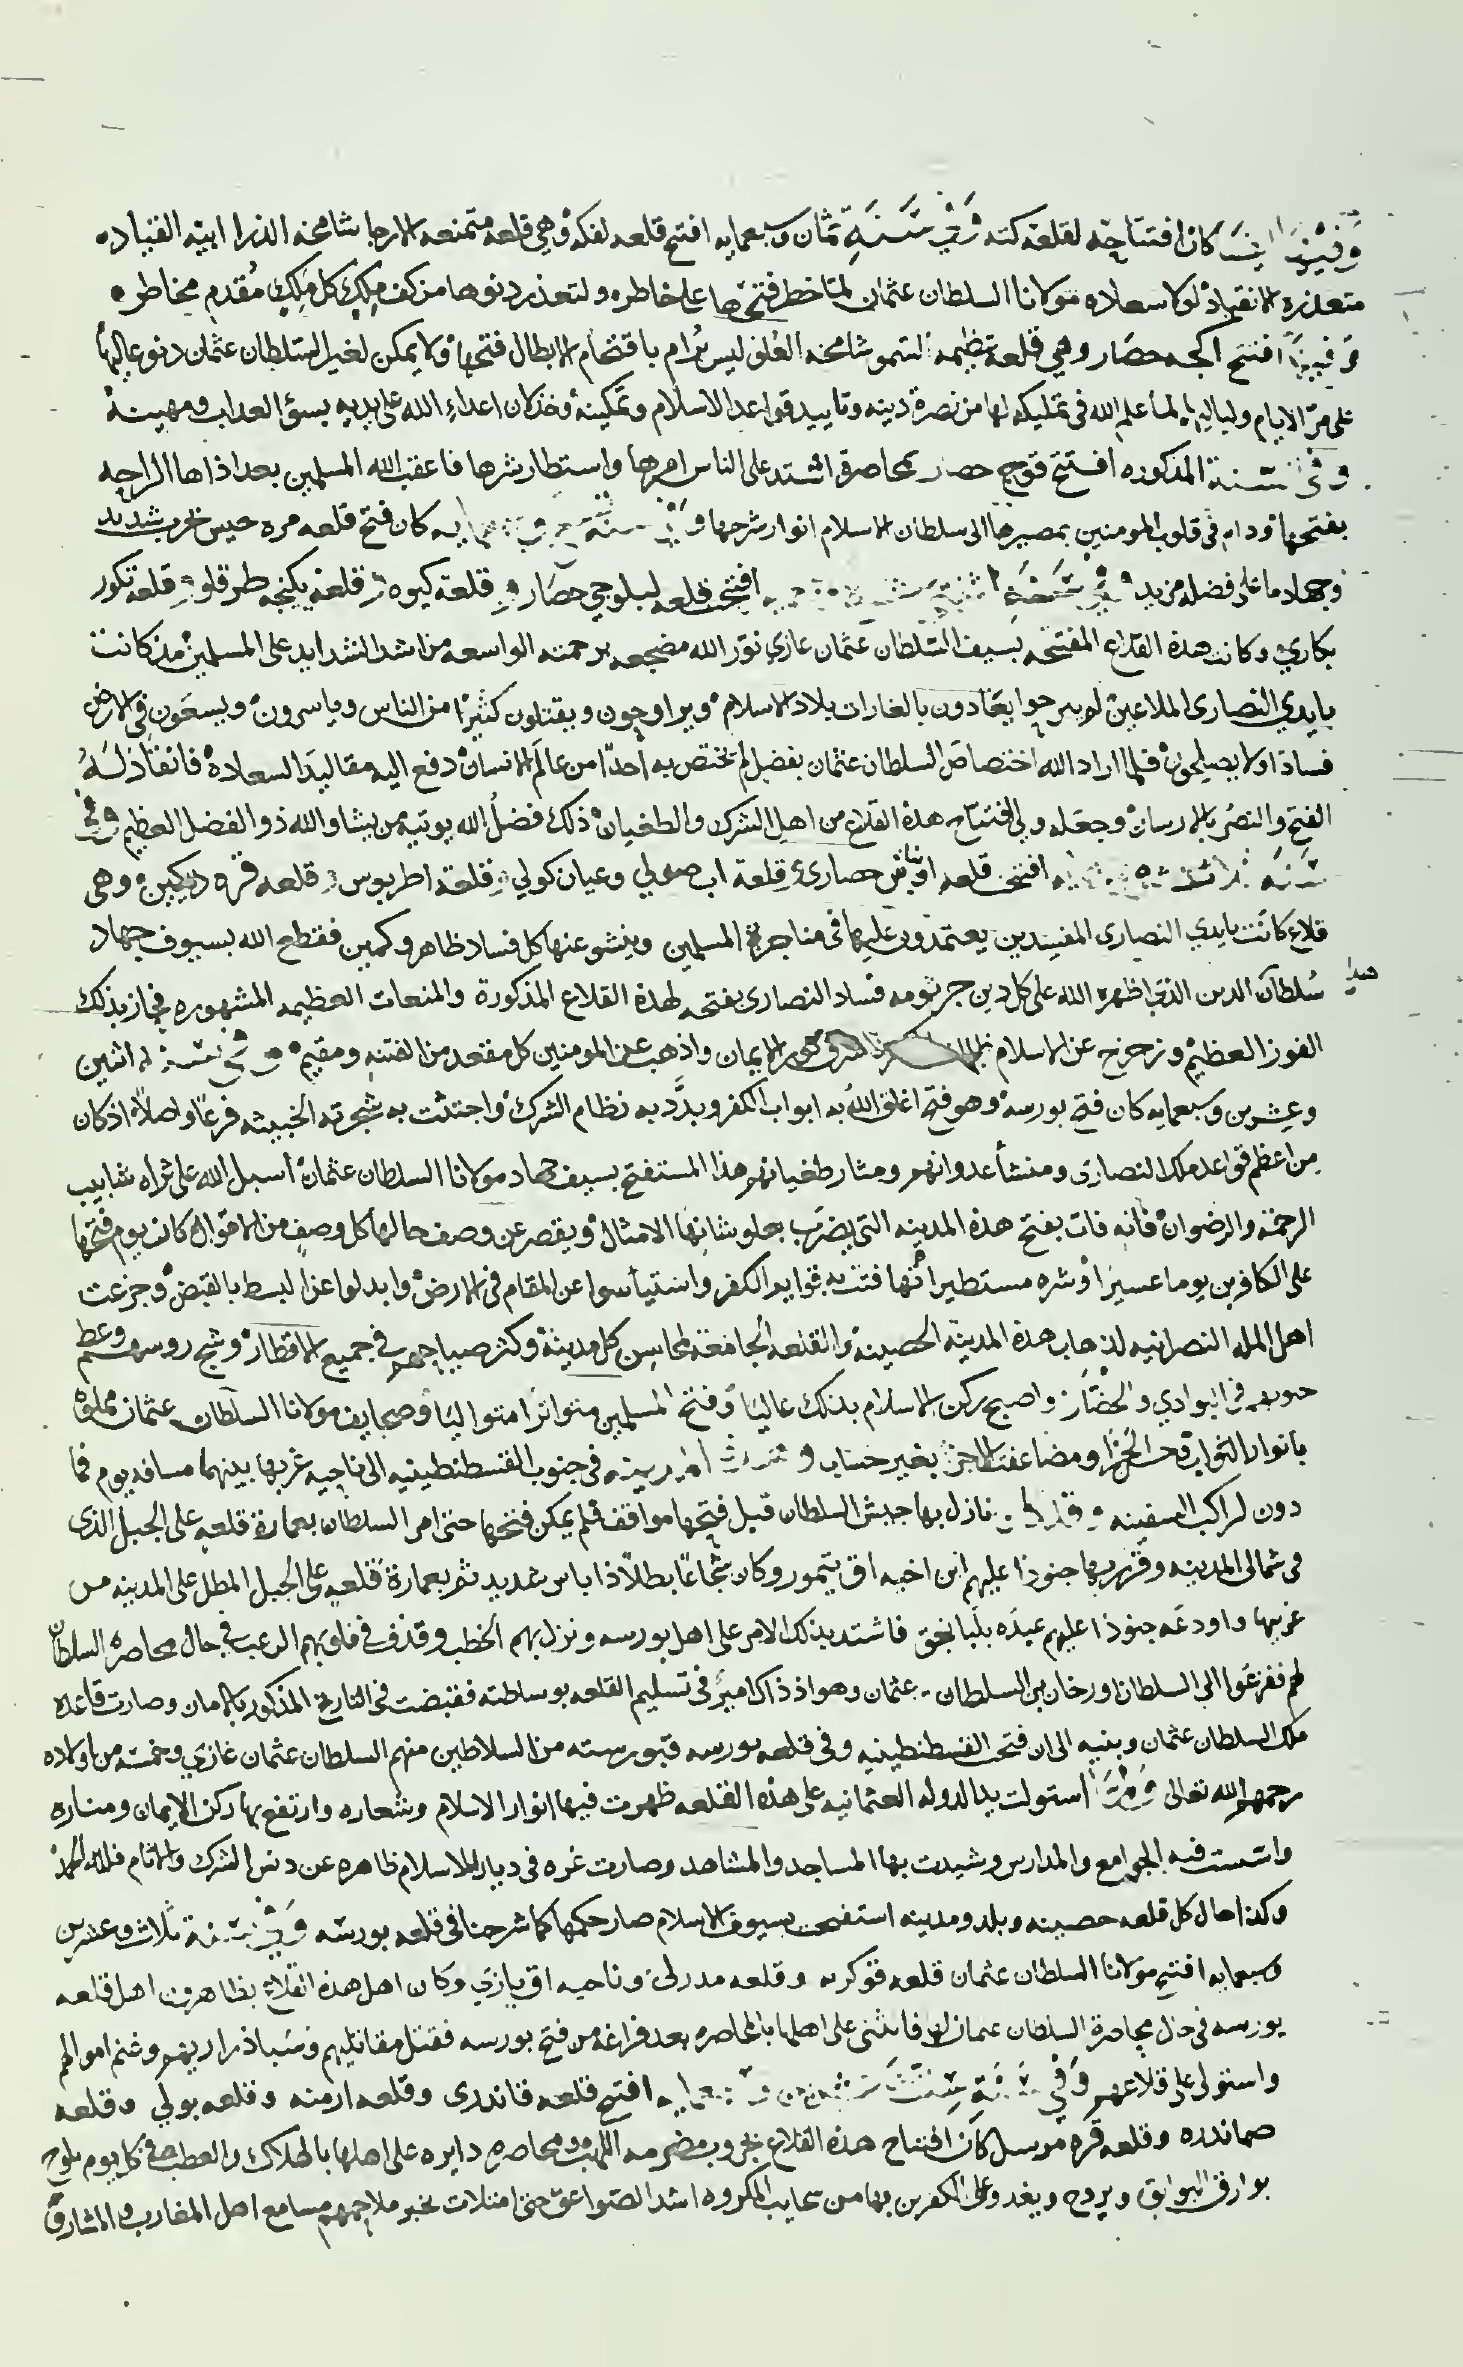 وفيها ايضا كان افتتاحه لقلعة كته وفي سنة ثمان وسبعمايه افتتح قلعه لفكه وهي قلعه متمنعه الارجا شامخه الذرا ابيه القياده
متعذره الانقياد لولا سعاده مولانا السلطان عثمان لما خطر فتحها على خاطره ولتعذر دنوها من كف ملك كل ملك مقدم مخاطر
وفيها افتتح اكجه حصار وهي قلعة عظيمه السمو شامخه العلو ليس ترام باقتحام الابطال فتحها ولا يمكن لغير السلطان عثمان دنو عاليها
على مر الايام ولياليها لما علم الله في تمليكه لها من نصرة دينه وتاييد قواعد الاسلام وتمكينه وخذلان اعداء الله على يديه بسؤ العذاب ومهينه
وفي السنة المذكوره افتتح قوج حصار بمحاصرة اشتد على الناس امرها واستطار شرها فاعقب الله المسلمين بعد اذاها الراحه
بفتحها ودام في قلوب المومنين بمصيرها الى سلطان الاسلام انوار شرحها وفي سنة كان فتح قلعه مره حيس بحرب شديد
وجهاد ما على فضله مزيد وفي سنة اثنتي عشرة افتتحت قلعه لبلوجي حصار وقلعة كيوه وقلعة يكيجه طرقلو وقلعة تكور
بكاري وكانت هذه القلاع المفتحه بسيف السلطان عثمان غازي نور الله مضجعه برحمته الواسعه من اشد الشدايد على المسلمين منذ كانت
بايدي النصارى الملاعين لم يبرحوا يغادون بالغارات بلاد الاسلام ويراوحون ويقتلون كثيرا من الناس وياسرون ويسعون في الارض
فسادا ولا يصلحون فلما اراد الله اختصاص السلطان عثمان بفضل لم يختص به احدا من عالم الانسان دفع اليه مقاليد السعاده فانقاد له
الفتح والنصر بالارسان وجعله ولي افتتاح هذه القلاع من اهل الشرك والطغيان ذلك فضل الله يوتيه من يشا والله ذو الفضل العظيم وفي
سنة افتتحت قلعه اوناش حصاري وقلعة اب صولي وعيان كولي وقلعة اطربوس وقلعه قره دكين وهي
قلاع كانت بايدي النصارى المفسدين يعتمدون عليها في مناجزة المسلمين وينشو عنها كل فساد ظاهر وكمين فقطع الله بسيوف جهاد
سلطان الدين الذي اظهره الله على كل دين جرثومه فساد النصارى بفتحه لهذه القلاع المذكورة والمنعات العظيمه المشهوره فحاز بذلك
الفوز العظيم وزحزح عن الاسلام الايمان واذهب عن المومنين كل مقعد من الفتنه ومقيم وفي سنة اثنين
وعشرين وسبعمايه كان فتح بورسه وهو فتح اغلق الله به ابواب الكفر وبدد به نظام الشرك واجتثت به شجرته الخبيثه فرعا واصلا اذ كان
من اعظم قواعد ملك النصارى ومنشأ عدوانهم ومثار طغيانهم هذا المستفتح بسيف جهاد مولانا السلطان عثمان اسبل الله على ثراه شابيب
الرحمة والرضوان فانه فات بفتح هذه المدينه التي يضرب بعلو شانها الامثال ويقصر عن وصف حالها كل وصف من الاقوال كانت يوم فتحها
على الكافرين يوما عسيرا وشره مستطيرا فتت به قوايم الكفر واستيأسوا عن المقام في الارض وابدلوا عز البسط بالقبض وجزعت
اهل المله النصرانيه لذهاب هذه المدينه الحصينه والقلعه الجامعة لمحاسن كل مدينة وكثر صياحهم في جميع الاقطار وشج روسهم ولطم
خدودهم في البوادي والحضار واصبح ركن الاسلام بذلك عاليا وفتح المسلمين متواترا متواليا وصحايف مولانا السلطان عثمان مملوة
بانوار الثواب ومضاعفة الاجر بغير حساب و في جنوب القسطنطينيه الى ناحيه غربها بينهما مسافه يوم فما
دون لراكب السفينه نازل بها جيش السلطان قبل فتحها مواقف فلم يمكن فتحها حتى امر السلطان بعمارة قلعه على الجبل الذي
في شمالي المدينه وقرر بها جنودا عليهم ابن اخيه اق تيمور وكان شجاعا بطلا ذا باس شديد ثم بعمارة قلعه على الجبل المطل على المدينه من
غربيها واودعه جنودا عليهم عبده بلبانجق فاشتد بذلك الامر على اهل بورسه ونزل بهم الخطب وقذف في قلوبهم الرعب في حال محاصره السلطان
لهم ففزعوا الى السلطان اورخان بن السلطان عثمان وهو اذ ذاك امير في تسليم القلعه بوساطته فقبضت في التاريخ المذكور بالامان وصارت قاعده
ملك السلطان عثمان وبنيه الى ان فتحت القسطنطينيه وفي قلعه بورسه قبور سته من السلاطين منهم السلطان عثمان غازي وخمسة من اولاده
رحمهم الله تعالى ولما استولت يد الدوله العثمانيه على هذه القلعه ظهرت فيها انوار الاسلام وشعاره وارتفع بها ركن الايمان ومناره
واسست فيه الجوامع والمدارس وشيدت بها المساجد والمشاهد وصارت غره في ديار الاسلام ظاهره عن دنس الشرك والاثام فلله الحمد
وكذا حال كل قلعه حصينه وبلد ومدينه استفتحت بسيوف الاسلام صار حكمها كما شرحنا في قلعه بورسه وفي سنة ثلاث وعشرين
وسبعمايه افتتح مولانا السلطان عثمان قلعه قوكره وقلعه مدرلي وناحيه اق يازي وكان اهل هذه القلاع يظاهرون اهل قلعه
بورسه في حال محاصرة السلطان عثمان لها فانثنى على اهلها بالمحاصره بعد فراغه من فتح بورسه فقتل مقاتليهم وسبا ذراريهم وغنم اموالهم
واستولى على قلاعهم وفي سنة افتتح قلعه قاندري وقلعه ارمنه وقلعه بولي وقلعه
صماندره وقلعه قره مرسل كان افتتاح هذه القلاع بحروب مضرمه اللهب ومحاصره دايره على اهلها بالهلاك والعطب في كل يوم يلوح
بوارق البوايق ويروح ويغدو على الكفرين بها من سحايب المكروه اشد الصواعق حتى امتلات بخبر ملاحمهم مسامع اهل المغارب والمشارق